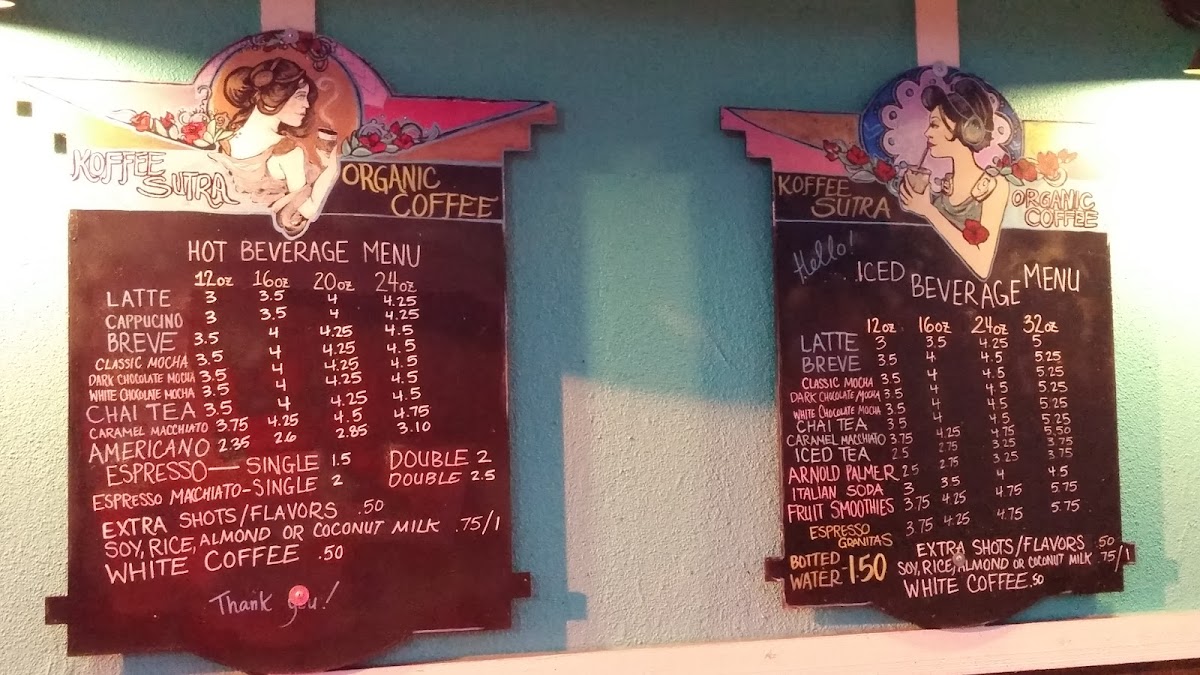 KOFFEE SUTRA
ORGANIC COFFEE
HOT BEVERAGE MENU
12oz 16oz 20oz 24oz
LATTE 3 3.5 4 4.25
CAPPUCINO 3 3.5 4 4.25
BREVE 3.5 4 4.25 4.5
CLASSIC MOCHA 3.5 4 4.25 4.5
DARK CHOCOLATE MOCHA 3.5 4 4.25 4.5
WHITE CHOCOLATE MOCHA 3.5 4 4.25 4.5
CHAI TEA 3.5 4 4.25 4.5
CARAMEL MACCHIATO 3.75 4.25 4.5 4.75
AMERICANO 2.35 2.6 2.85 3.10
ESPRESSO— SINGLE 1.5 DOUBLE 2
ESPRESSO MACCHIATO-SINGLE 2 DOUBLE 2.5
EXTRA SHOTS/FLAVORS .50
SOY, RICE, ALMOND OR COCONUT MILK .75/1
WHITE COFFEE .50
Thank you!
KOFFEE SUTRA
ORGANIC COFFEE
Hello!
ICED BEVERAGE MENU
12oz 16oz 24oz 32oz
LATTE 3 3.5 4.25 5
BREVE 3.5 4 4.5 5.25
CLASSIC MOCHA 3.5 4 4.5 5.25
DARK CHOCOLATE MOCHA 3.5 4 4.5 5.25
WHITE CHOCOLATE MOCHA 3.5 4 4.5 5.25
CHAI TEA 3.5 4 4.5 5.25
CARAMEL MACCHIATO 3.75 4.25 4.75 5.50
ICED TEA 2.5 2.75 3.25 3.75
ARNOLD PALMER 2.5 2.75 3.25 3.75
ITALIAN SODA 3 3.5 4 4.5
FRUIT SMOOTHIES 3.75 4.25 4.75 5.75
ESPRESSO GRANITAS 3.75 4.25 4.75 5.75
BOTTED WATER - 1.50
EXTRA SHOTS/FLAVORS .50
SOY, RICE, ALMOND OR COCONUT MILK .75/1
WHITE COFFEE .50